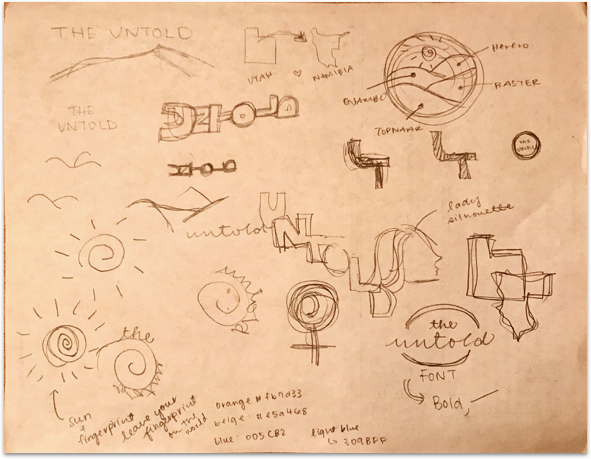 THE UNTOLD
UTAH ♡ NAMIBIA
Herero
BASTER
TOPNAAR
THE
UNTOLD
UNTOLD
UNTOLD
THE
UNTOLD
untold
UNTOLD
lady
silhouette
the
the
untold
FONT
Bold,
sun
+
fingerprint
leave your
fingerprint
on the
world
orange # fb9d33
beige: #e5a468
blue: 005CB2
light blue
↳ 309BFF